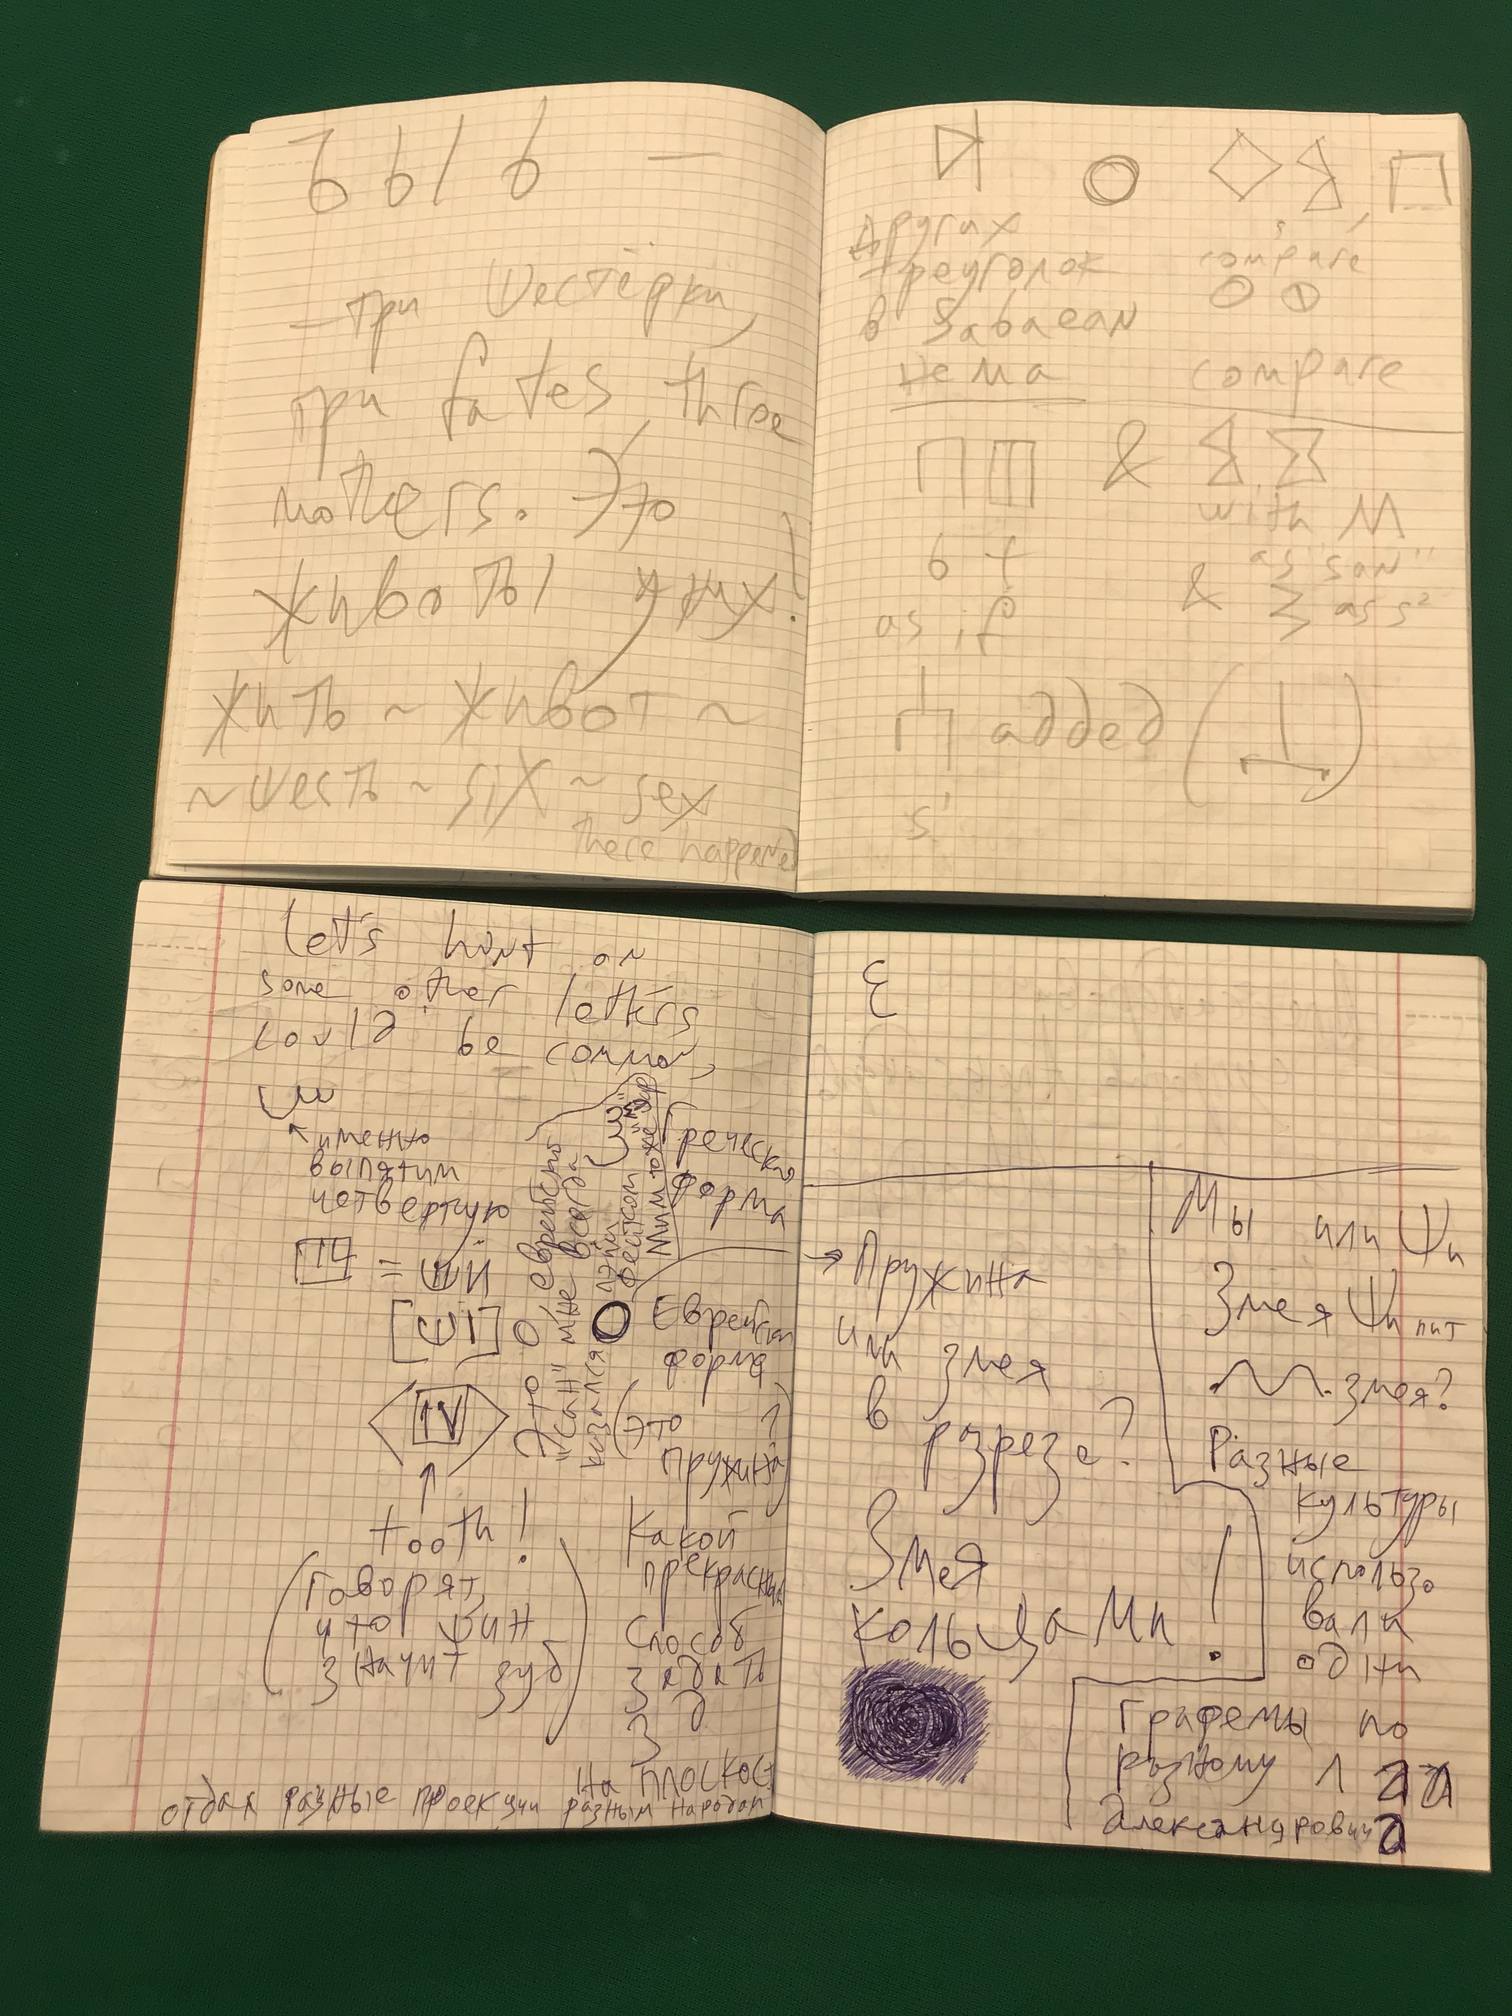 Ъ Ы Ь —
— три шестёрки,
три fates three
mothers. Это
животы у них!
жить ~ живот ~
~ шесть ~ six ~ sex
there happened
других
треуголок
в Sabaean
нема
compare
compare
&
with M
as "san"
& Σ as s²
6 t
as if
added ( )
s¹
Let's hunt on
some other letters
could be common,
именно
выпятим
четвертую
= ШЙ
[ШІ]
IV
tooth!
(Говорят,
что шин
значит зуб)
Это еврейство
"сан" мне всегда
казался
Греческая
форма
Еврейская
форма
(Это
пружина?)
Какой
прекрасный
способ
задать
3 д
на плоскос
отдая разные проекции разным народам
ε
→ Пружина
или змея
в разрезе?
Змея
кольцами!
Мы или Ψи
Змея Ψипит
змея?
Разные
культуры
использо
вали
одни
графемы по
разному
Александрович